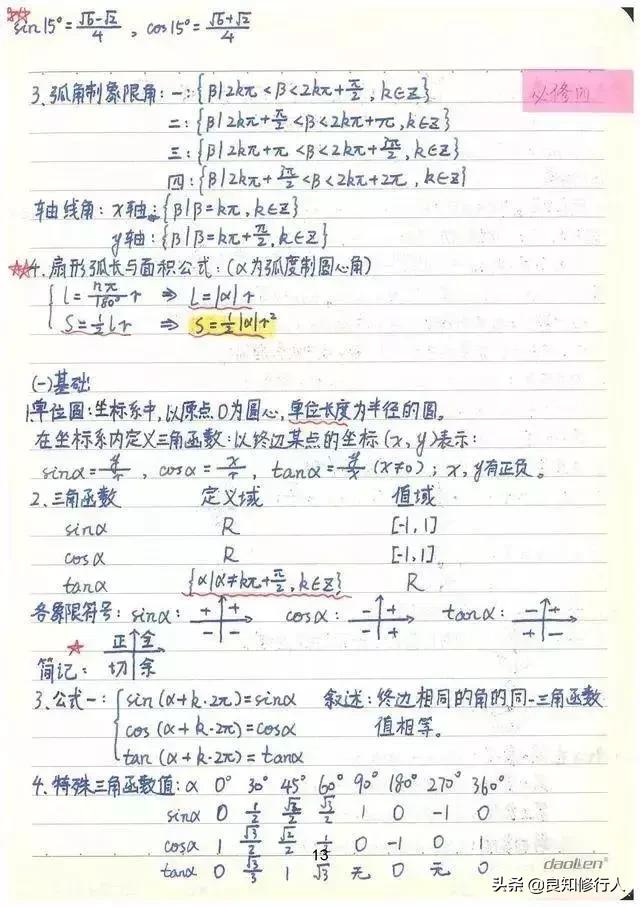 sin15°=(√6-√2)/4 , cos15°=(√6+√2)/4
3.弧角制象限角: 一:{β|2kπ<β<2kπ+π/2, k∈Z}
必修四
二:{β|2kπ+π/2<β<2kπ+π, k∈Z}
三:{β|2kπ+π<β<2kπ+3π/2, k∈Z}
四:{β|2kπ+3π/2<β<2kπ+2π, k∈Z}
轴线角: x轴:{β|β=kπ, k∈Z}
y轴:{β|β=kπ+π/2, k∈Z}
4.扇形弧长与面积公式:(α为弧度制圆心角)
l=nπ/180° r ⇒ L=|α|r
S=1/2 l r ⇒ S=1/2|α|r²
(一)基础:
1.单位圆:坐标系中,以原点O为圆心,单位长度为半径的圆。
在坐标系内定义三角函数:以终边某点的坐标(x, y)表示:
sinα=y/r , cosα=x/r , tanα=y/x (x≠0); x, y有正负。
2.三角函数 定义域 值域
sinα R [-1,1]
cosα R [-1,1]
tanα {α|α≠kπ+π/2, k∈Z} R
各象限符号: sinα: + + - - cosα: - + - + tanα: - + + -
简记: 正 全 切 余
3.公式一: sin(α+k·2π)=sinα 叙述:终边相同的角的同一三角函数
cos(α+k·2π)=cosα 值相等。
tan(α+k·2π)=tanα
4.特殊三角函数值: α 0° 30° 45° 60° 90° 180° 270° 360°
sinα 0 1/2 √2/2 √3/2 1 0 -1 0
cosα 1 √3/2 √2/2 1/2 0 -1 0 1
13
tanα 0 √3/3 1 √3 无 0 无 0
daolen
头条 @良知修行人